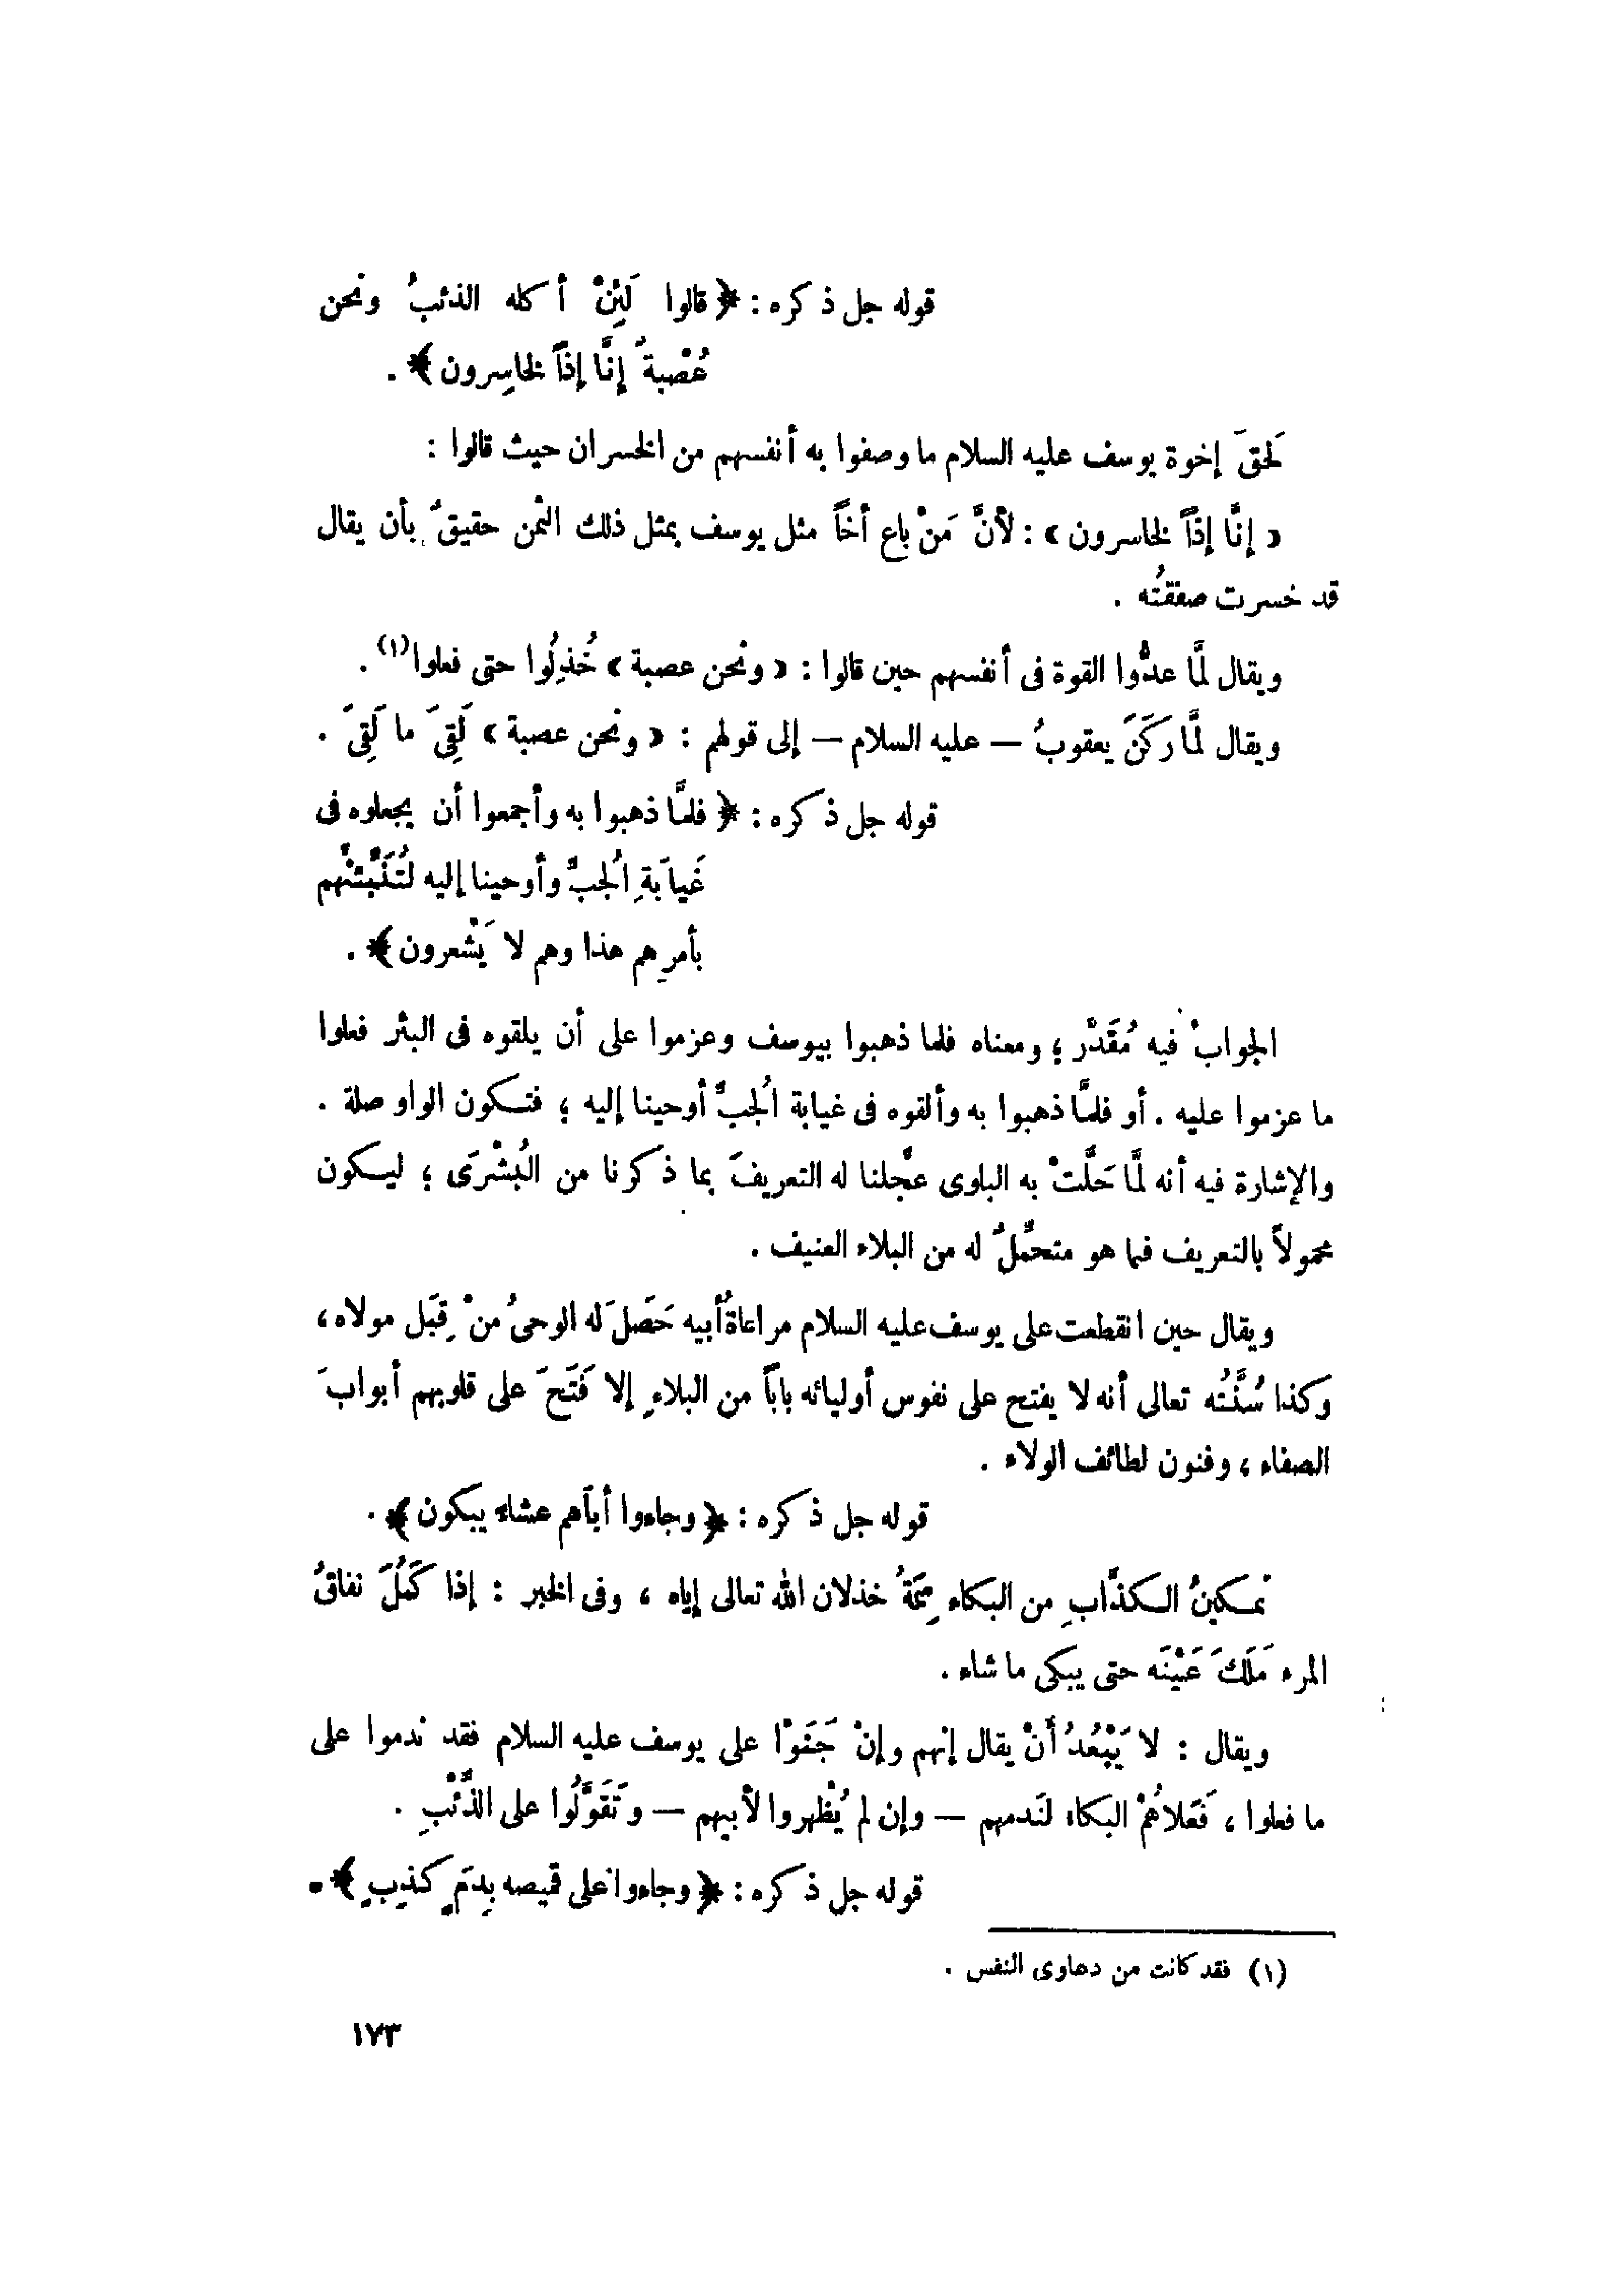 قوله جل ذكره : ﴿ قالوا لَئِنْ أكله الذئبُ ونحن
عُصْبةٌ إنَّا إذاً لخاسِرون ﴾ .
لَحِقَ إخوة يوسف عليه السلام ما وصفوا به أنفسهم من الخسران حيث قالوا :
« إنَّا إذاً لخاسرون » : لأنَّ مَنْ باع أخاً مثل يوسف بمثل ذلك الثمن حقيقٌ بأن يقال
قد خسرت صفقتُه .
ويقال لمَّا عدُّوا القوة فى أنفسهم حين قالوا : « ونحن عصبة » خُذِلُوا حتى فعلوا(١) .
ويقال لمَّا رَكَنَ يعقوبُ — عليه السلام — إلى قولهم : « ونحن عصبة » لَقِىَ ما لَقِىَ .
قوله جل ذكره : ﴿ فلمَّا ذهبوا به وأجمعوا أن يجعلوه فى
غَيابَةِ الُجبِّ وأوحينا إليه لتُنَبِّئَنَّهم
بأمرِهم هذا وهم لا يَشْعرون ﴾ .
الجوابُ فيه مُقَدَّر ؛ ومعناه فلما ذهبوا بيوسف وعزموا على أن يلقوه فى البئر فعلوا
ما عزموا عليه . أو فلمَّا ذهبوا به وألقوه فى غيابة الُجبِّ أوحينا إليه ؛ فتكون الواو صلة .
والإشارة فيه أنه لمَّا حَلَّتْ به البلوى عجَّلنا له التعريفَ بما ذكرنا من البُشْرَى ؛ ليكون
محمولاً بالتعريف فيما هو متحمِّلٌ له من البلاء العنيف .
ويقال حين انقطعت على يوسف عليه السلام مراعاةُ أبيه حَصَلَ له الوحىُ منْ قِبَل مولاه ،
وكذا سُنَّتُه تعالى أنه لا يفتح على نفوس أوليائه باباً من البلاءِ إلا فَتَحَ على قلوبهم أبوابَ
الصفاء ، وفنون لطائف الولاء .
قوله جل ذكره : ﴿ وجاءوا أباهم عشاء يبكون ﴾ .
تمكينُ الكذَّابِ من البكاء سِمَةُ خذلان الله تعالى إياه ، وفى الخبر : إذا كَمُلَ نفاقُ
المرء مَلَكَ عَيْنَه حتى يبكى ما شاء .
ويقال : لا يَبْعُدُ أنْ يقال إنهم وإنْ جَنَوْا على يوسف عليه السلام فقد ندموا على
ما فعلوا ، فَعَلاهُمْ البكاء لنَدمهم — وإن لم يُظْهِروا لأبيهم — وتَقَوَّلُوا على الذِّئْبِ .
قوله جل ذكره : ﴿ وجاءوا على قميصه بِدَمٍ كذِبٍ ﴾ .
(١) فقد كانت من دعاوى النفس .
١٧٣